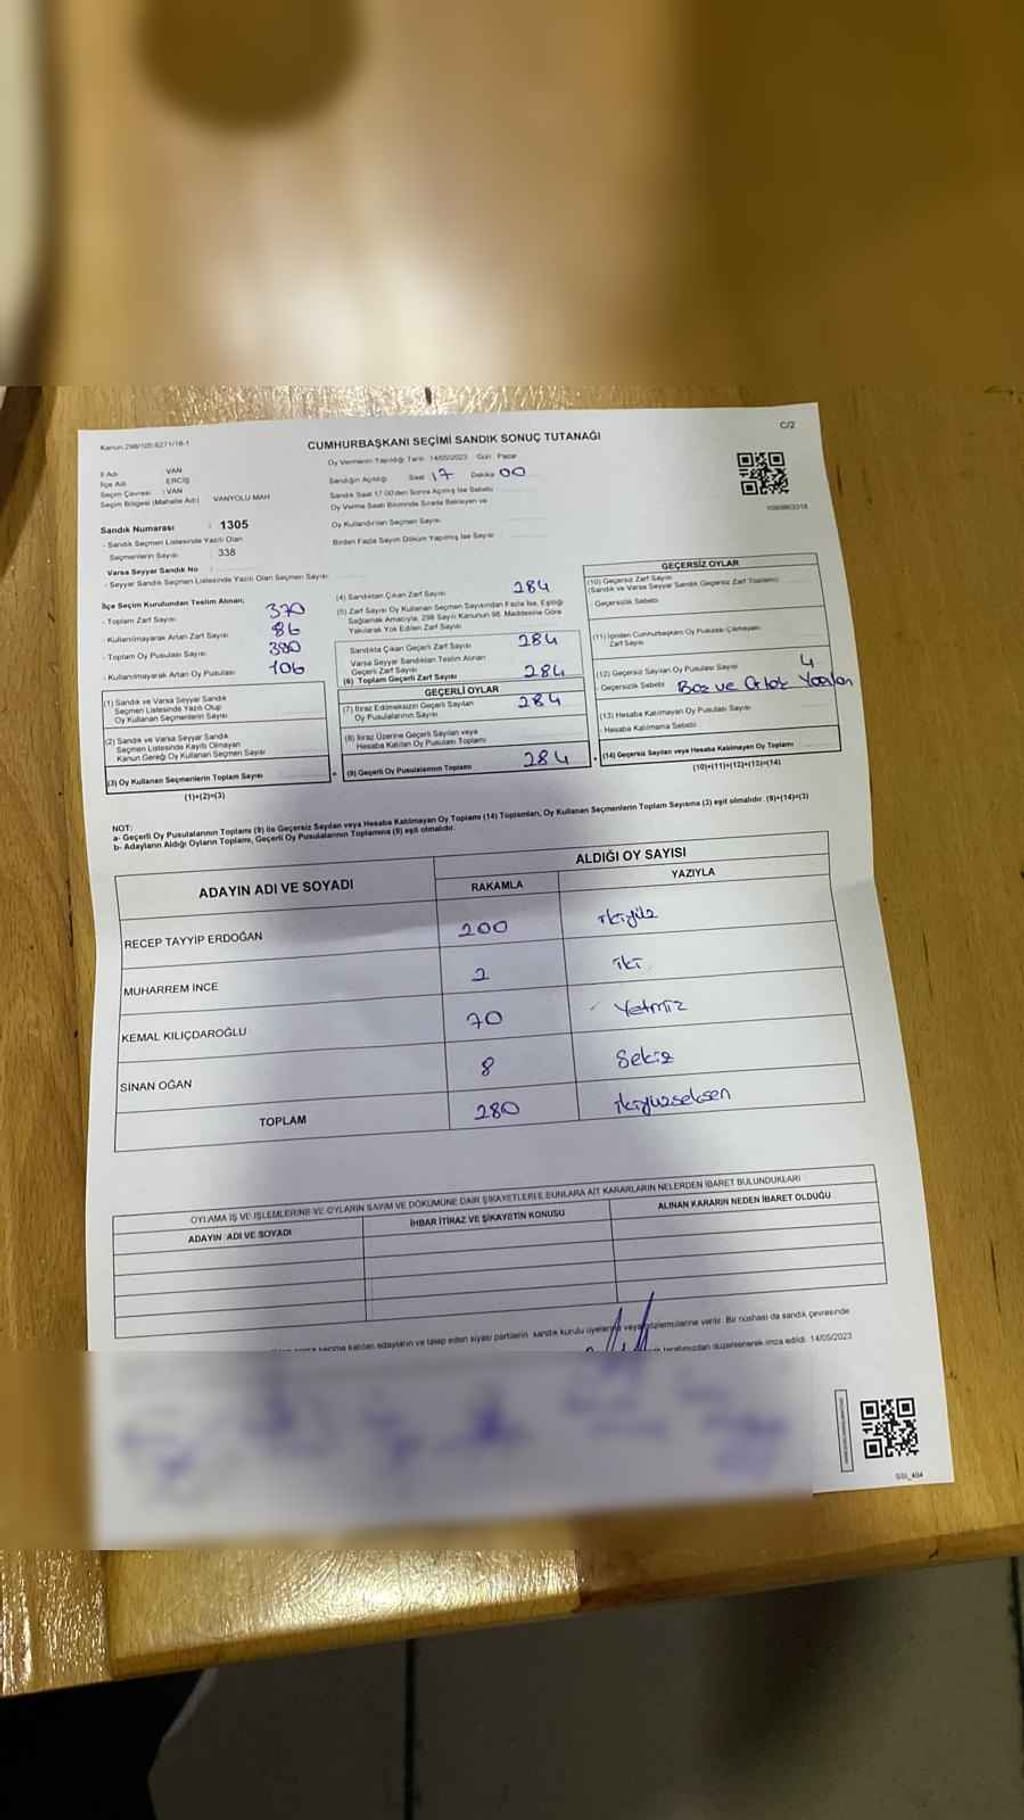 Kanun:298/105 6271/18-1
C/2
CUMHURBAŞKANI SEÇİMİ SANDIK SONUÇ TUTANAĞI
İl Adı VAN
İlçe Adı ERCİŞ
Seçim Çevresi : VAN
Seçim Bölgesi (Mahalle Adı) VANYOLU MAH
Sandık Numarası : 1305
- Sandık Seçmen Listesinde Yazılı Olan
Seçmenlerin Sayısı 338
Varsa Seyyar Sandık No
- Seyyar Sandık Seçmen Listesinde Yazılı Olan Seçmen Sayısı
Oy Vermenin Yapıldığı Tarih 14/05/2023 Gün: Pazar
Sandığın Açıldığı Saat 17 Dakika 00
Sandık Saat 17.00'den Sonra Açılmış İse Sebebi
Oy Verme Saati Bitiminde Sırada Bekleyen ve
Oy Kullandırılan Seçmen Sayısı
Birden Fazla Sayım Döküm Yapılmış İse Sayısı
İlçe Seçim Kurulundan Teslim Alınan;
- Toplam Zarf Sayısı 370
- Kullanılmayarak Artan Zarf Sayısı 86
- Toplam Oy Pusulası Sayısı 390
- Kullanılmayarak Artan Oy Pusulası 106
(1) Sandık ve Varsa Seyyar Sandık
Seçmen Listesinde Yazılı Olup
Oy Kullanan Seçmenlerin Sayısı
(2) Sandık ve Varsa Seyyar Sandık
Seçmen Listesinde Kayıtlı Olmayan
Kanun Gereği Oy Kullanan Seçmen Sayısı
(3) Oy Kullanan Seçmenlerin Toplam Sayısı
(1)+(2)=(3)
(4) Sandıktan Çıkan Zarf Sayısı 284
(5) Zarf Sayısı Oy Kullanan Seçmen Sayısından Fazla İse, Eşitliği
Sağlamak Amacıyla, 298 Sayılı Kanunun 98. Maddesine Göre
Yakılarak Yok Edilen Zarf Sayısı
Sandıkta Çıkan Geçerli Zarf Sayısı 284
Varsa Seyyar Sandıktan Teslim Alınan
Geçerli Zarf Sayısı
(6) Toplam Geçerli Zarf Sayısı 284
GEÇERLİ OYLAR
(7) İtiraz Edilmeksizin Geçerli Sayılan
Oy Pusulalarının Sayısı 284
(8) İtiraz Üzerine Geçerli Sayılan veya
Hesaba Katılan Oy Pusulası Toplamı
(9) Geçerli Oy Pusulalarının Toplamı 284
GEÇERSİZ OYLAR
(10) Geçersiz Zarf Sayısı
(Sandık ve Varsa Seyyar Sandık Geçersiz Zarf Toplamı)
- Geçersizlik Sebebi
(11) İçinden Cumhurbaşkanı Oy Pusulası Çıkmayan
Zarf Sayısı
(12) Geçersiz Sayılan Oy Pusulası Sayısı 4
- Geçersizlik Sebebi Boz ve Ortak Yazılan
(13) Hesaba Katılmayan Oy Pusulası Sayısı
- Hesaba Katılmama Sebebi
(14) Geçersiz Sayılan veya Hesaba Katılmayan Oy Toplamı
(10)+(11)+(12)+(13)=(14)
NOT:
a- Geçerli Oy Pusulalarının Toplamı (9) ile Geçersiz Sayılan veya Hesaba Katılmayan Oy Toplamı (14) Toplamları, Oy Kullanan Seçmenlerin Toplam Sayısına (3) eşit olmalıdır. (9)+(14)=(3)
b- Adayların Aldığı Oyların Toplamı, Geçerli Oy Pusulalarının Toplamına (9) eşit olmalıdır.
ADAYIN ADI VE SOYADI
ALDIĞI OY SAYISI
RAKAMLA YAZIYLA
RECEP TAYYİP ERDOĞAN 200 ikiyüz
MUHARREM İNCE 2 iki
KEMAL KILIÇDAROĞLU 70 Yetmiz
SİNAN OĞAN 8 Sekiz
TOPLAM 280 ikiyüzseksen
OYLAMA İŞ VE İŞLEMLERİNE VE OYLARIN SAYIM VE DÖKÜMÜNE DAİR ŞİKAYETLERLE BUNLARA AİT KARARLARIN NELERDEN İBARET BULUNDUKLARI
ADAYIN ADI VE SOYADI İHBAR İTİRAZ VE ŞİKAYETİN KONUSU ALINAN KARARIN NEDEN İBARET OLDUĞU
seçime katılan adayların ve talep eden siyasi partilerin sandık kurulu üyelerine veya müşahitlerine verilir. Bir nüshası da sandık çevresinde
tarafımızdan düzenlenerek imza edildi. 14/05/2023